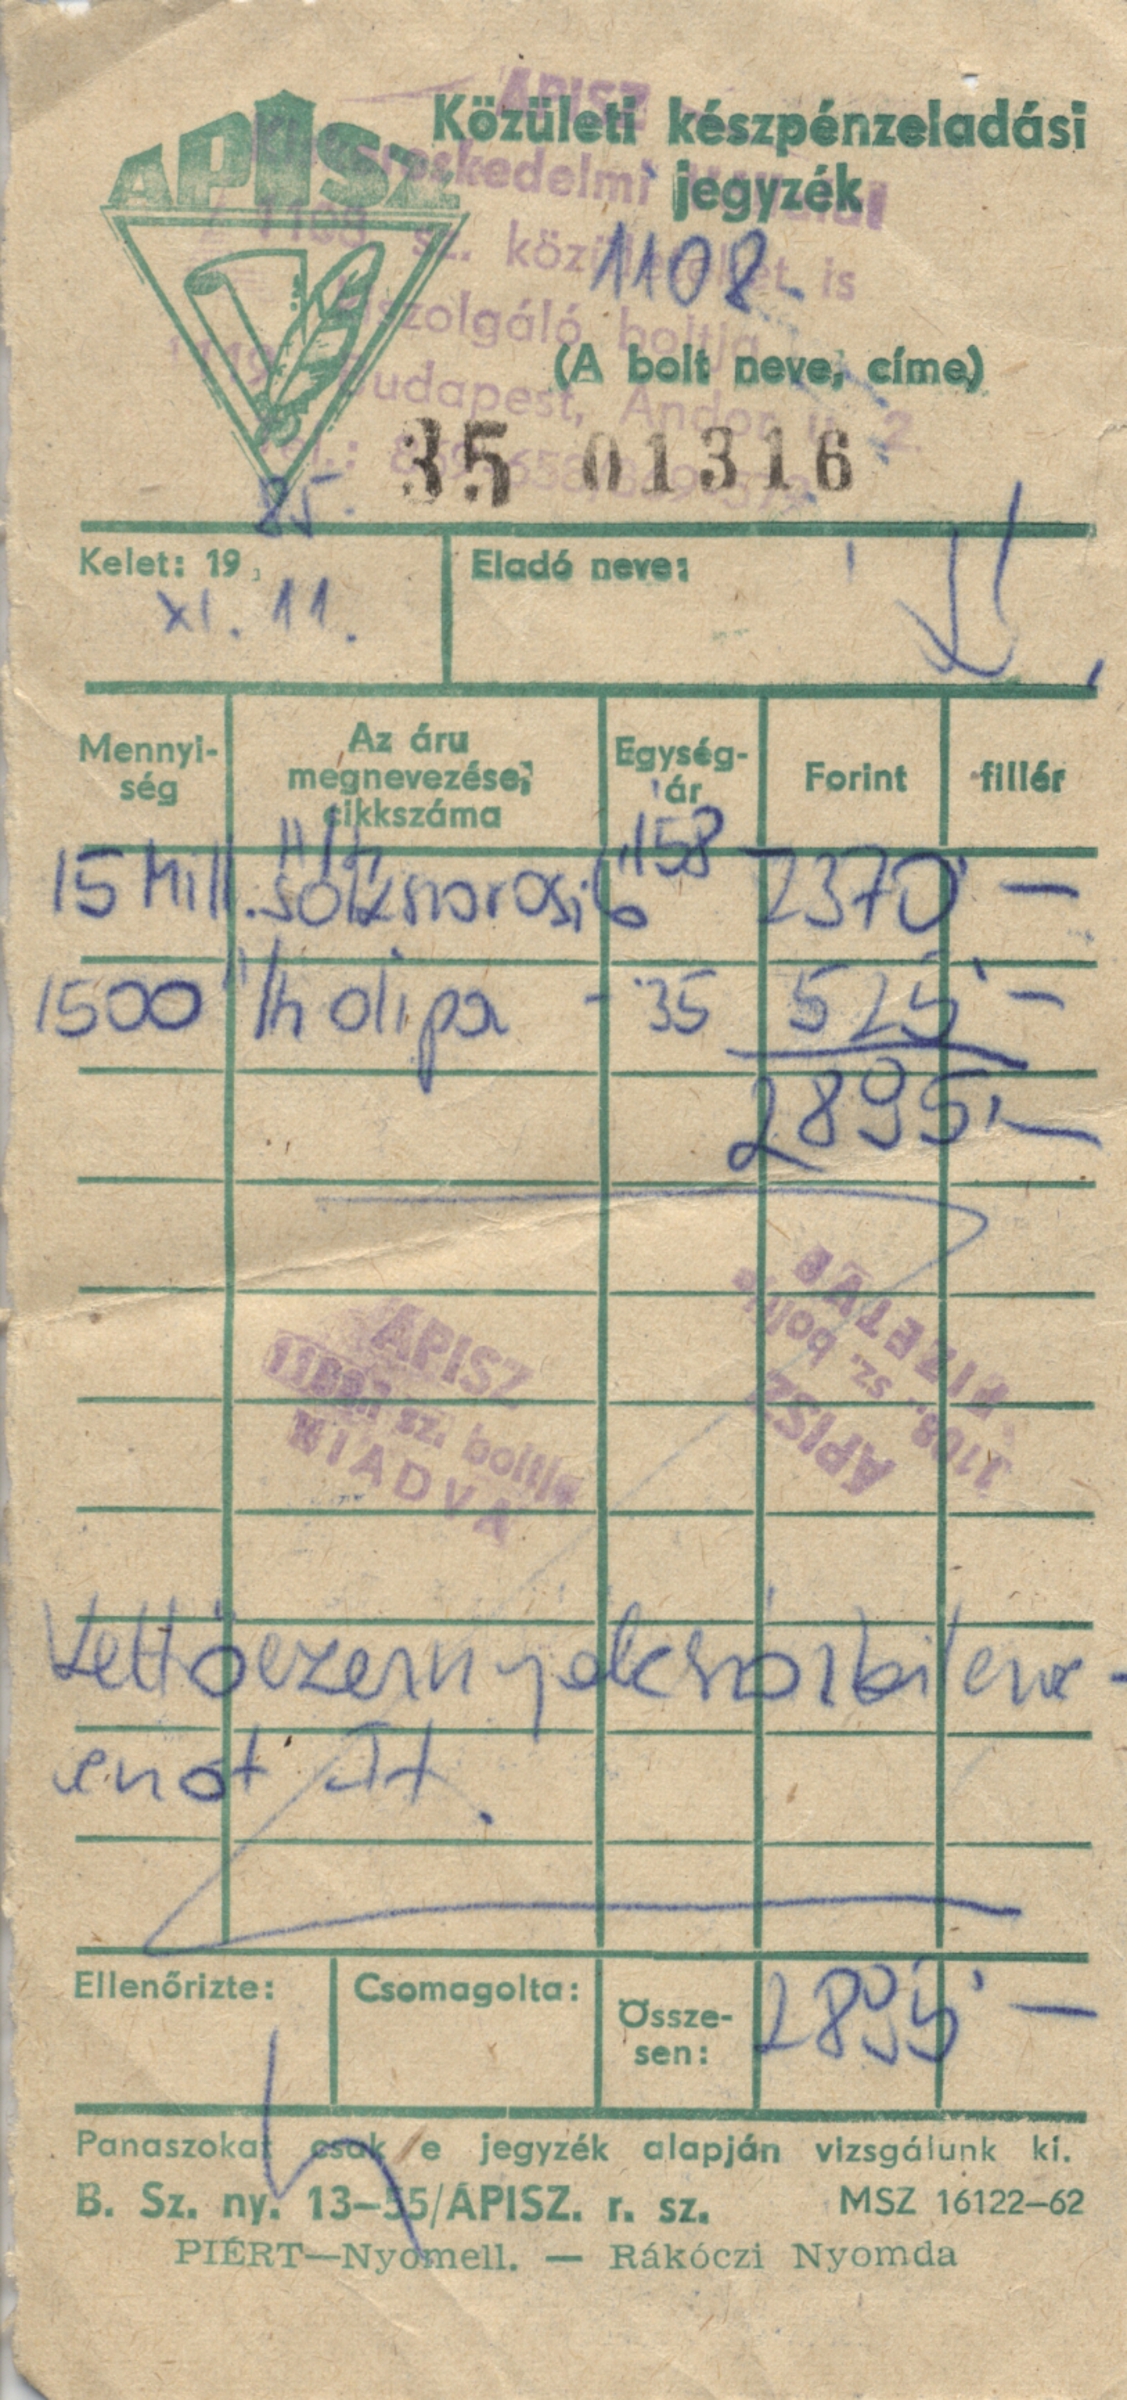 ÁPISZ
Közületi készpénzeladási
jegyzék
1108
(A bolt neve, címe)
sz. közületeket is
kiszolgáló boltja
Budapest, Andor u. 2.
35 01316
85.
Kelet: 19
XI. 11.
Eladó neve:
Mennyi-
ség
Az áru
megnevezése,
cikkszáma
Egység-
ár
Forint
fillér
15 158 2370 —
1500 35 525 —
2895 —
ÁPISZ
1108. sz. boltja
KIADVA
ÁPISZ
1108. sz. boltja
FIZETVE
Kettőezernyolcszázkilenc-
venöt Ft.
Ellenőrizte:
Csomagolta:
Össze-
sen:
2895 —
Panaszokat csak e jegyzék alapján vizsgálunk ki.
B. Sz. ny. 13—55/ÁPISZ. r. sz. MSZ 16122—62
PIÉRT—Nyomell. — Rákóczi Nyomda